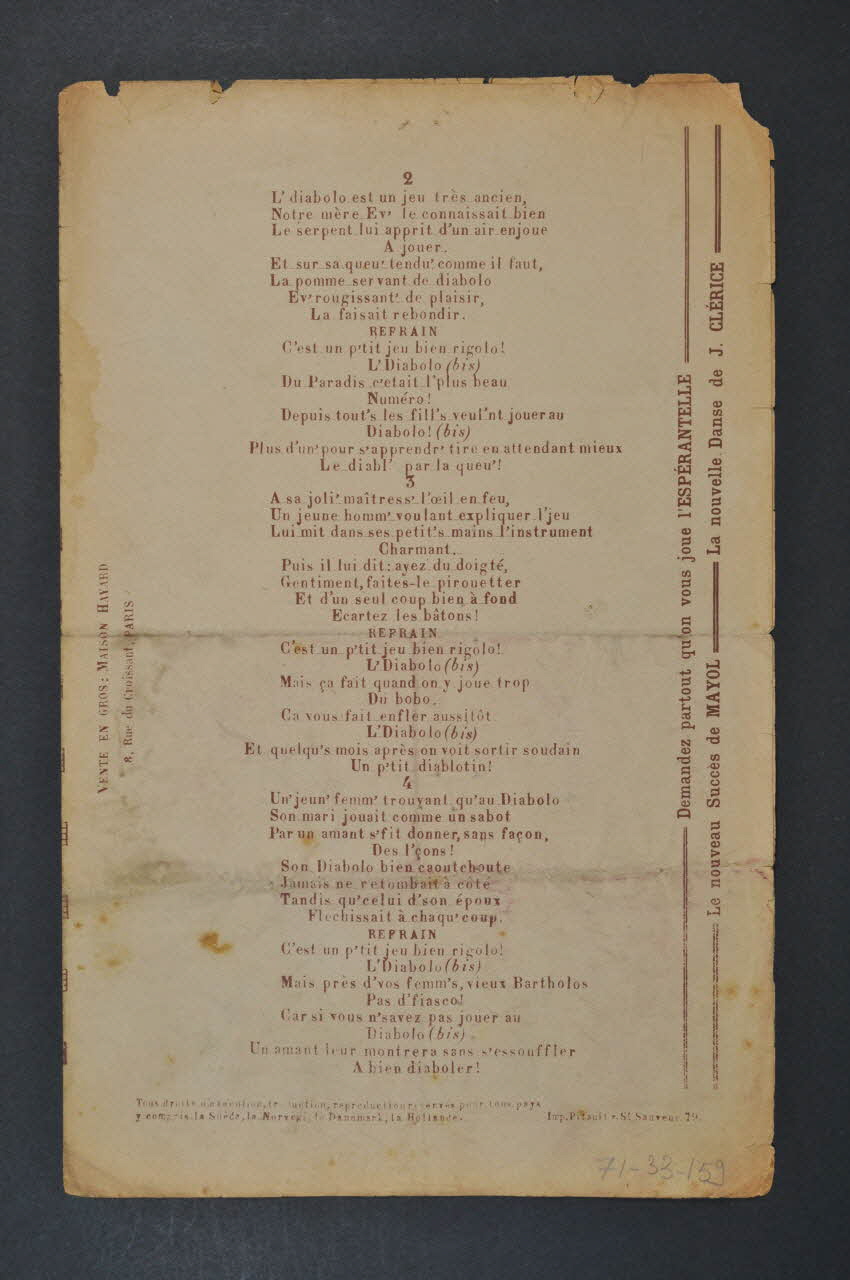 2
L'diabolo est un jeu très ancien,
Notre mère Ev' le connaissait bien
Le serpent lui apprit d'un air enjoue
A jouer.
Et sur sa queu' tendu' comme il faut,
La pomme servant de diabolo
Ev' rougissant' de plaisir,
La faisait rebondir.
REFRAIN
C'est un p'tit jeu bien rigolo!
L'Diabolo (bis)
Du Paradis c'etait l'plus beau
Numéro!
Depuis tout's les fill's veul'nt jouer au
Diabolo! (bis)
Plus d'un' pour s'apprendr' tire en attendant mieux
Le diabl' par la queu'!
3
A sa joli' maîtress' l'œil en feu,
Un jeune homm' voulant expliquer l'jeu
Lui mit dans ses petit's mains l'instrument
Charmant.
Puis il lui dit: ayez du doigté,
Gentiment, faites-le pirouetter
Et d'un seul coup bien à fond
Ecartez les bâtons!
REFRAIN
C'est un p'tit jeu bien rigolo!
L'Diabolo (bis)
Mais ça fait quand on y joue trop
Du bobo.
Ca vous fait enfler aussitôt
L'Diabolo (bis)
Et quelqu's mois après on voit sortir soudain
Un p'tit diablotin!
4
Un' jeun' femm' trouvant qu'au Diabolo
Son mari jouait comme un sabot
Par un amant s'fit donner, sans façon,
Des l'çons!
Son Diabolo bien caoutchoute
Jamais ne retombait à coté
Tandis qu'celui d'son époux
Flechissait à chaqu' coup.
REFRAIN
C'est un p'tit jeu bien rigolo!
L'Diabolo (bis)
Mais près d'vos femm's, vieux Bartholos
Pas d'fiasco!
Car si vous n'savez pas jouer au
Diabolo (bis)
Un amant leur montrera sans s'essouffler
A bien diaboler!
Tous droits d'exécution, traduction, reproduction réservés pour tous pays
y compris la Suède, la Norvège, le Danemark, la Hollande.
Imp. St Sauveur. 79.
VENTE EN GROS: MAISON HAYARD
8, Rue du Croissant, PARIS
Demandez partout qu'on vous joue l'ESPÉRANTELLE
Le nouveau Succès de MAYOL La nouvelle Danse de J. CLÉRICE
71-33-159